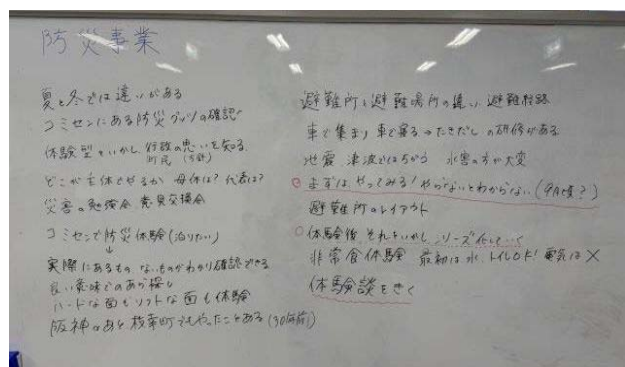 防災事業
夏と冬では違いがある
コミセンにある防災グッツの確認
体験型をいかし、行政の思いを知る
町民(方針)
どこが主体でやるか 母体は?代表は?
災害の勉強会 意見交換会
コミセンで防災体験(泊りたい)
↓
実際にあるもの ないものがわかり確認できる
良い意味でのあら探し
ハードな面もソフトな面も体験
阪神のあと 枝幸町でもやったことある(30年前)
避難所と避難場所の違い 避難経路
車で集まり 車で寝る→たきだし の研修がある
地震 津波ではちがう 水害の方が大変
まずはやってみる!やらないとわからない(9月頃?)
避難所のレイアウト
○体験後、それをいかし、シリーズ化していく
非常食体験 最初は水、トイレOK!電気は×
体験談をきく